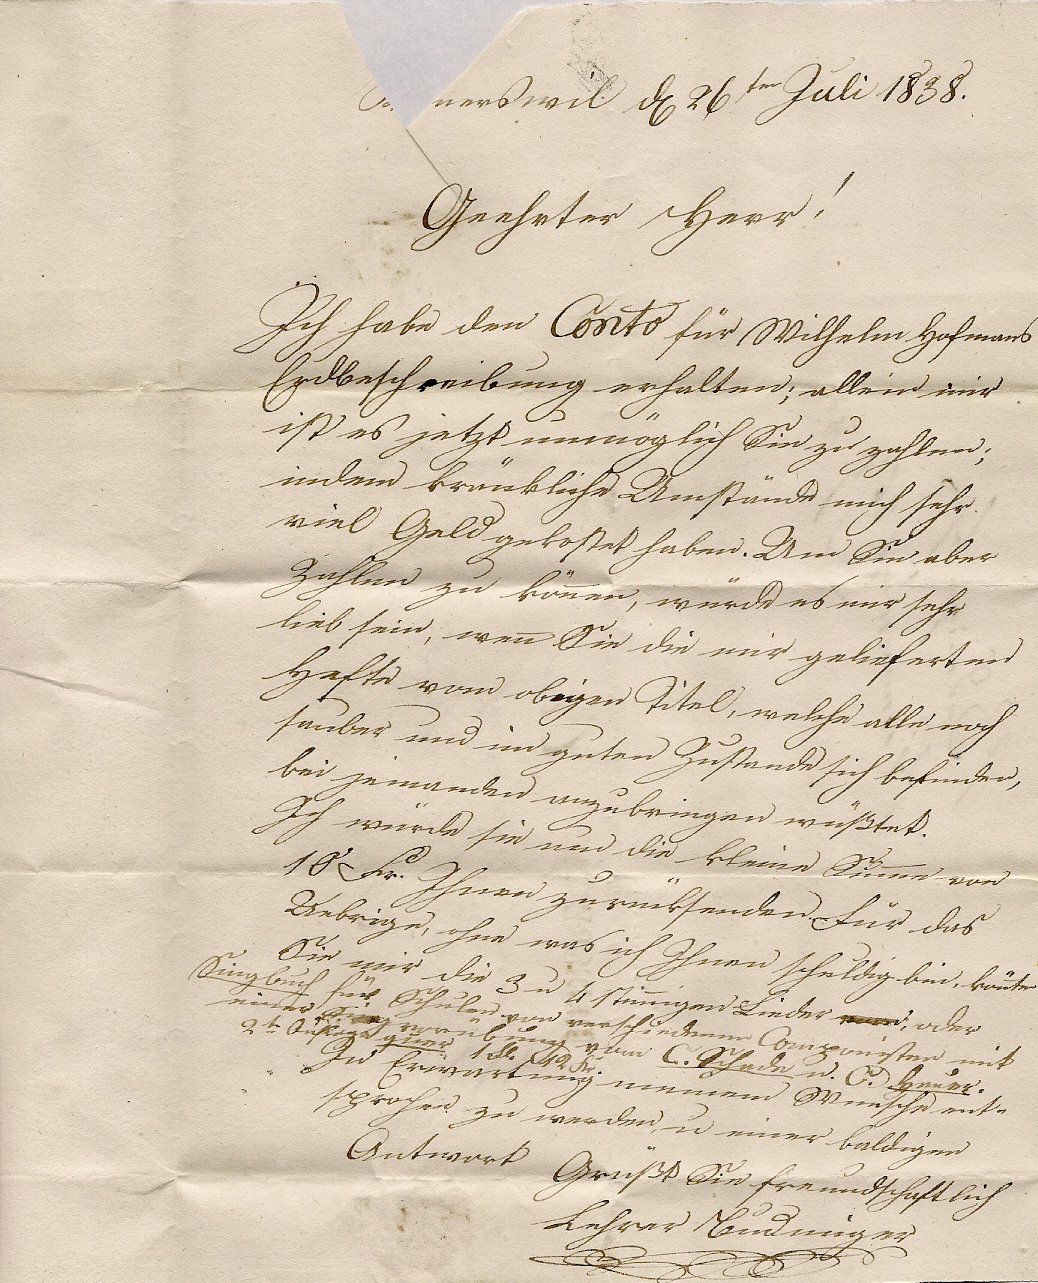 nerswil d 26ten Juli 1838.
Geehrter Herr!
Ich habe den Conto für Wilhelm Hofmans
Erdbeschreibung erhalten; allein mir
ist es jetzt unmöglich Sie zu zahlen;
indem kränkliche Umstände mich sehr
viel Geld gekostet haben. Um Sie aber
zahlen zu können, würde es mir sehr
lieb sein, wenn Sie die mir gelieferten
Hefte vom obigen Titel, welche alle noch
sauber und im guten Zustande sich befinden,
bei jemanden anzubringen wüßtet.
Ich würde sie um die kleine Summe von
18 Fr. Ihnen zurücksenden. Für das
Uebrige, ohne was ich Ihnen schuldig bin, könten
Sie mir die 3 u 4 stimmigen Lieder oder
Singbuch für Schulen von verschiedenen Componisten mit
einer vorübung vom C. Schade u. C.
2te Auflage quer 1 fl. 42
In Erwartung meinem Wunsche ent-
sprochen zu werden, u einer baldigen
Antwort
Grüßt Sie freundschaftlich
Lehrer